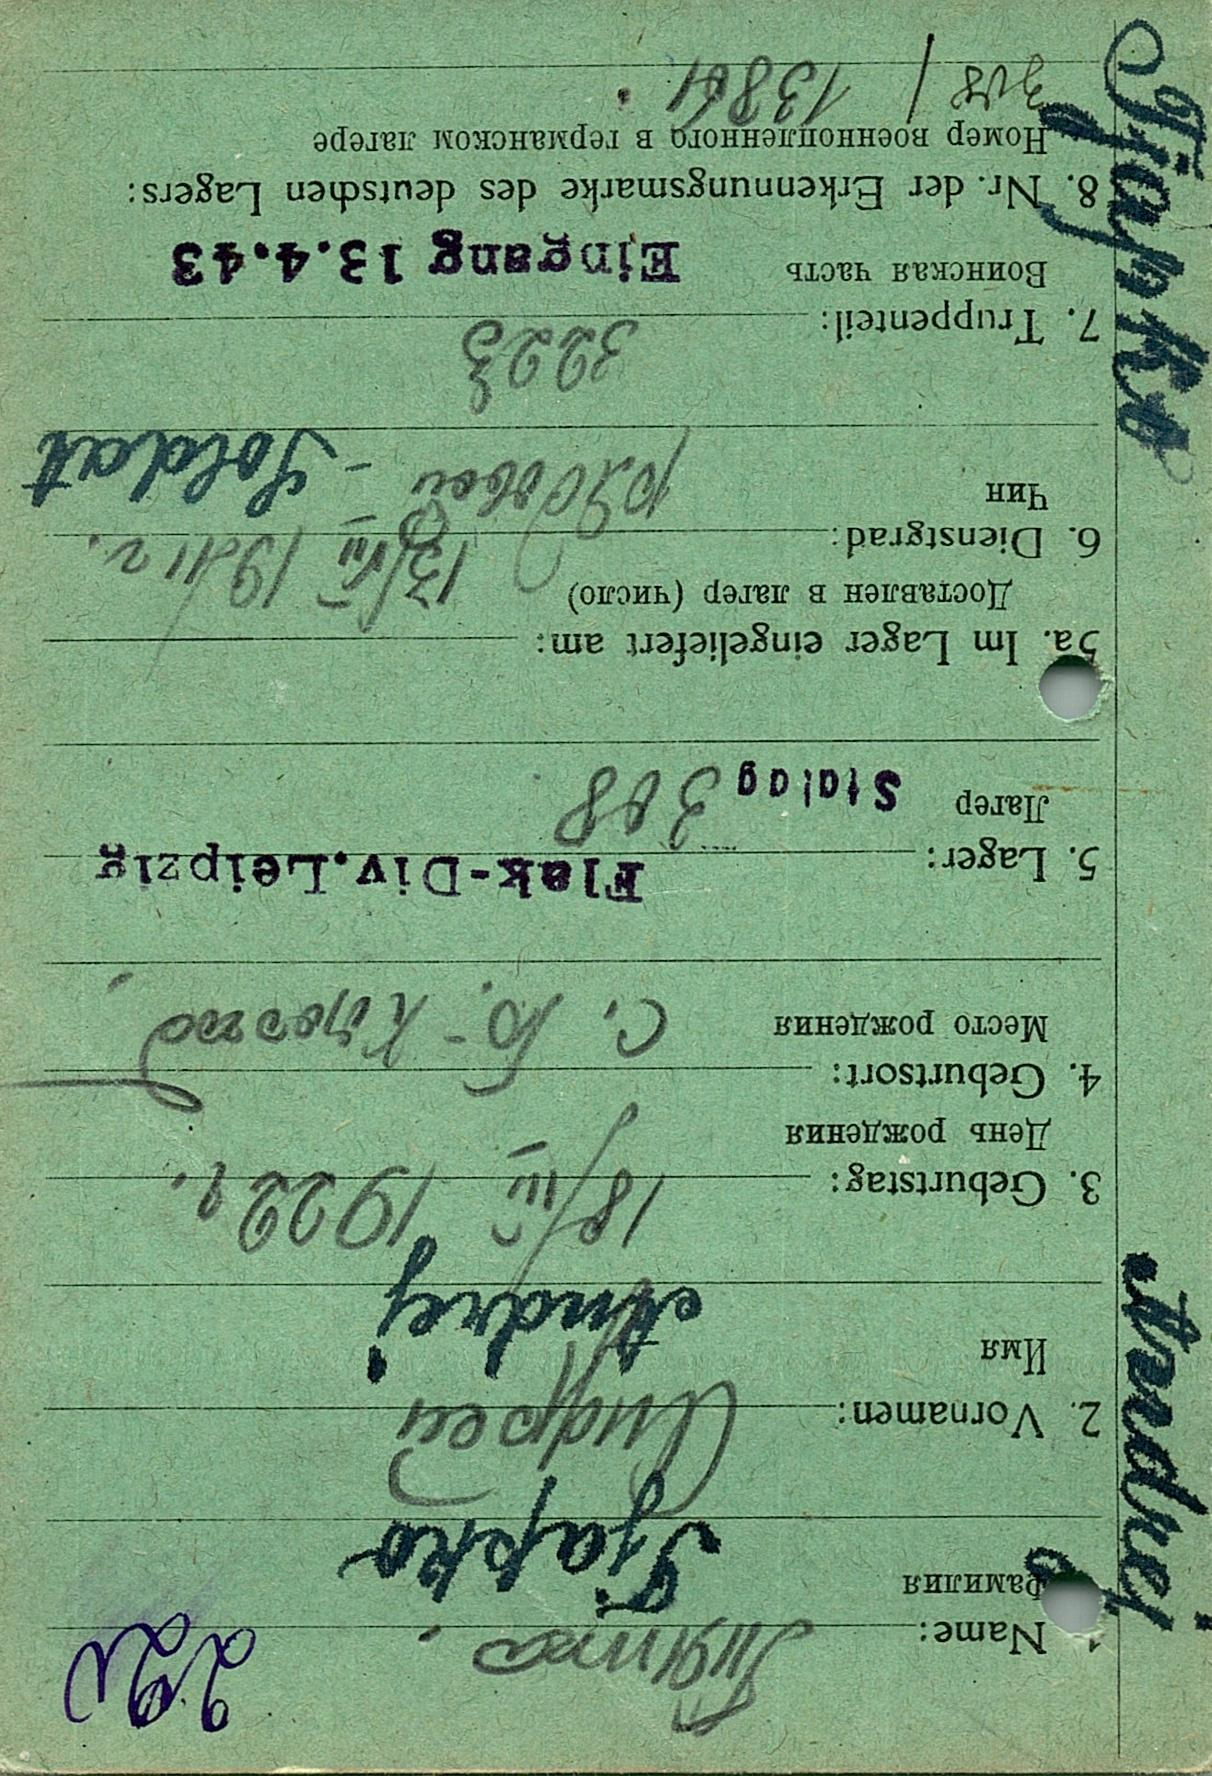 Tjapko Andrej
220
1. Name: Тяпко.
Фамилия Tjapko
2. Vornamen: Андрей
Имя Andrej
3. Geburtstag: 18/IV 1922 г.
День рождения
4. Geburtsort:
Место рождения с. Б-
5. Lager: Flak-Div. Leipzig
Лагер Stalag 308
5a. Im Lager eingeliefert am:
Доставлен в лагер (число) 13/VIII 1941 г.
6. Dienstgrad:
Чин рядовой - Soldat
7. Truppenteil: 3223
Воинская часть Eingang 13.4.43
8. Nr. der Erkennungsmarke des deutschen Lagers:
Номер военнопленного в германском лагере
308 / 13861.